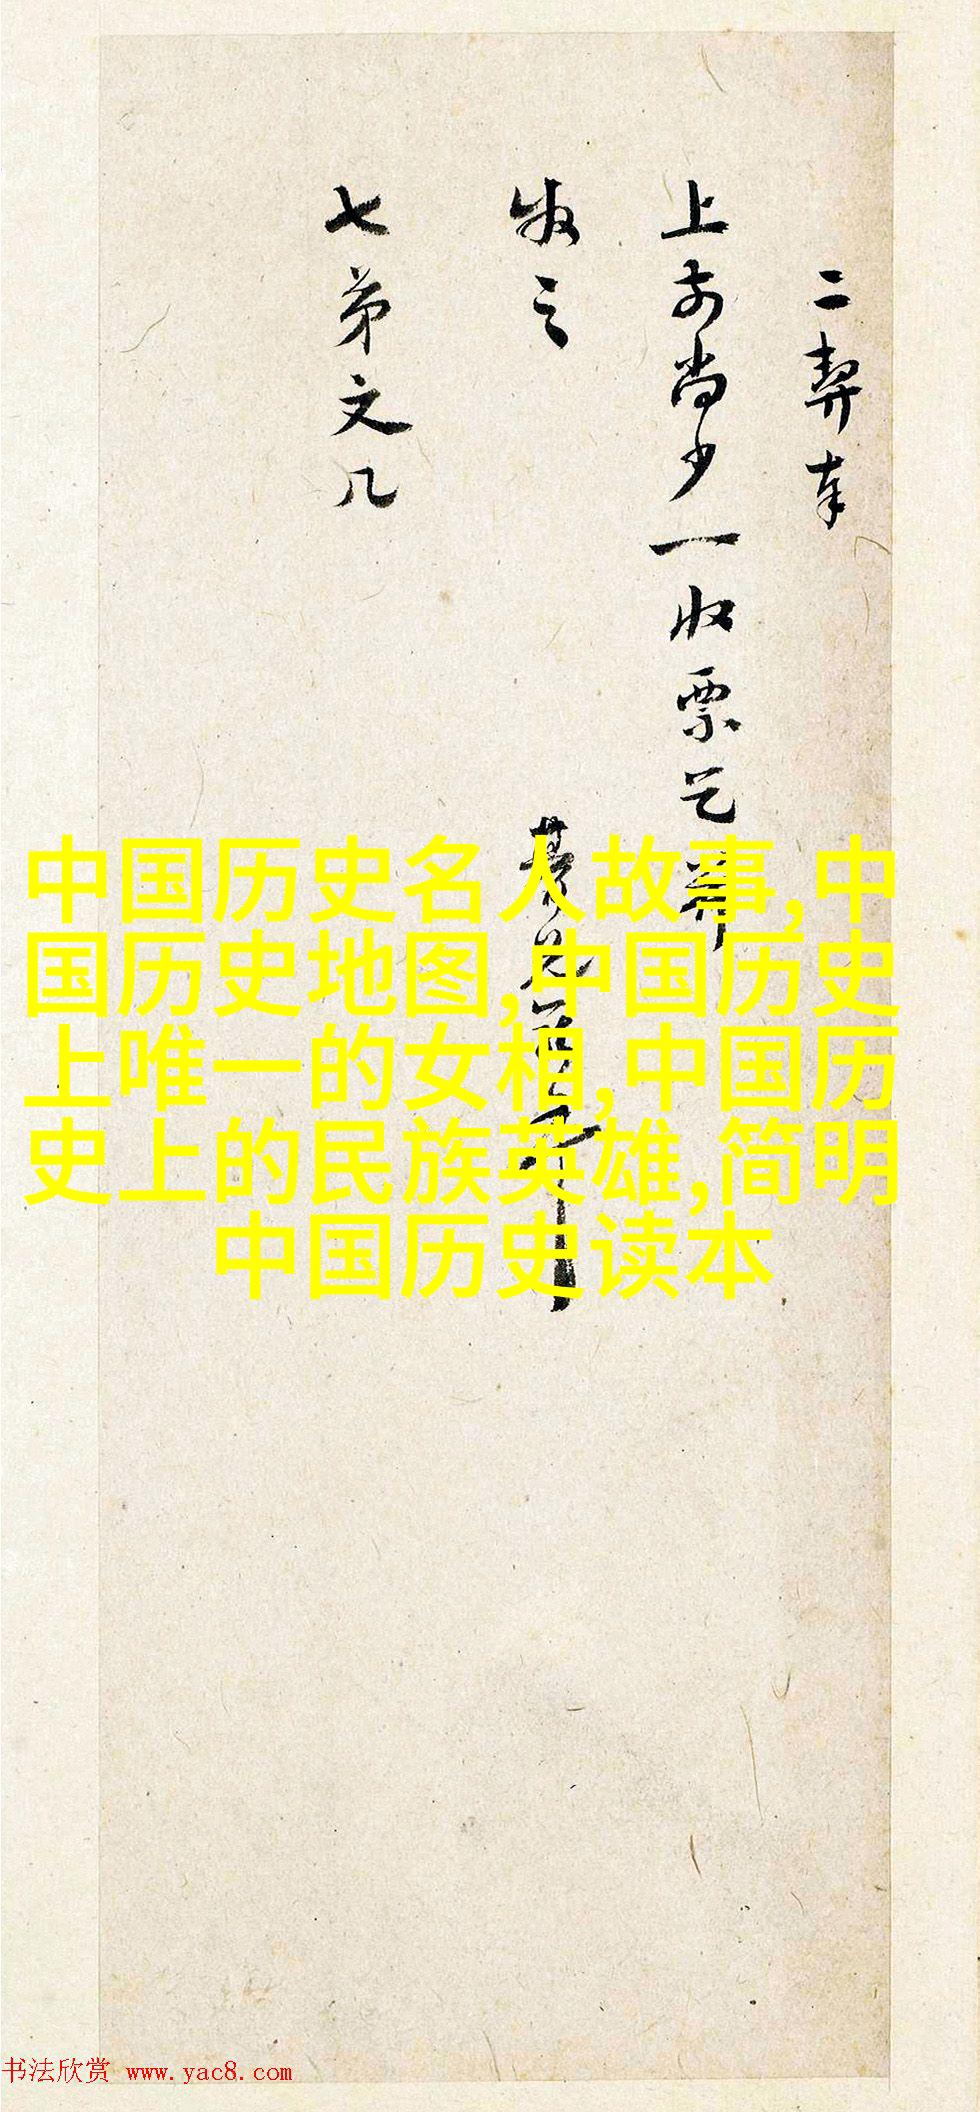 二契奉
上前尚少一收票乞
收之
七弟文几
中国历史名人故事,中
国历史地图,中国历史
上唯一的女相,中国历
史上的民族英雄,简明
中国历史读本
书法欣赏 www.yac8.com